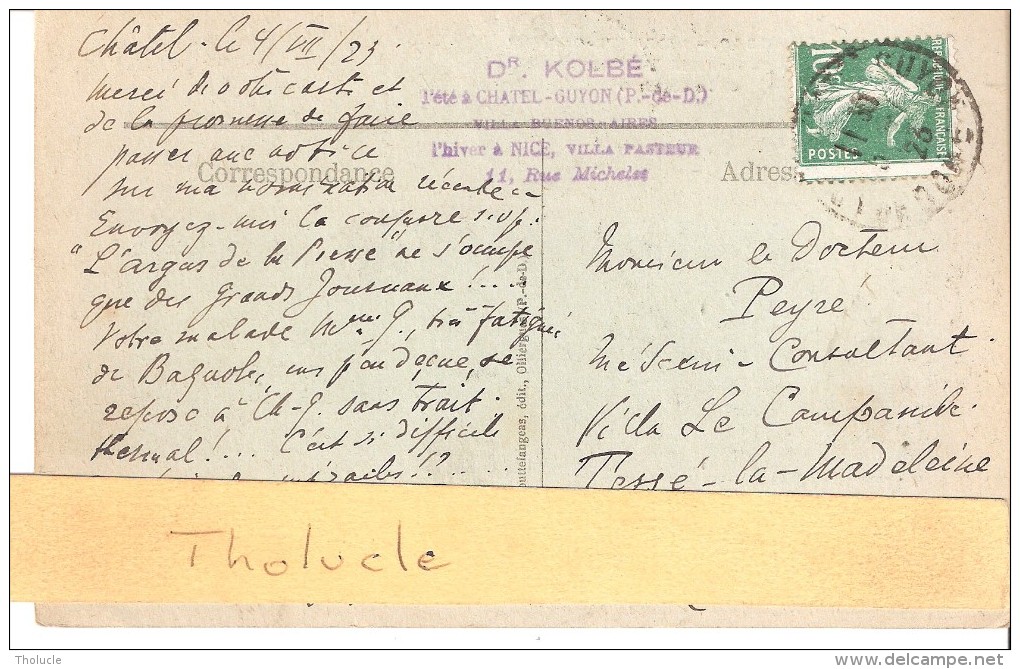 Châtel. le 4/VII/23.
merci de votre carte et
de la promesse de faire
passer une notice
sur ma nomination récente.
Envoyez-moi la coupure s.v.p.
"L'argus de la Presse" ne s'occupe
que des grands Journaux!....
Votre malade Mme G., très fatiguée
de Bagnoles, un peu déçue, se
repose à Ch-G. sans trait.
thermal!... C'est si difficile
DR. KOLBÉ
l'été à CHATEL-GUYON (P.-de-D.)
VILLA BUENOS-AIRES
l'hiver à NICE, VILLA PASTEUR
11, Rue Michelet
Correspondance
Adresse
REPUBLIQUE FRANÇAISE
10c
POSTES
Monsieur le Docteur
Peyré
Médecin-Consultant.
Villa Le Campanile.
Tessé-la-Madeleine
édit., Olliergues (P.-de-D.)
Tholucle
Tholucle
www.delcampe.net